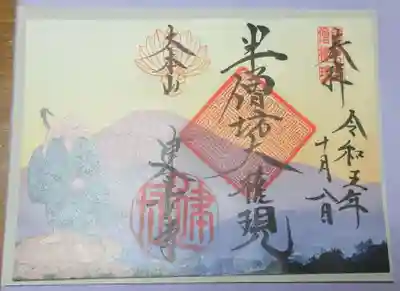 奉拝
令和五年
十月八日
半僧坊大権現
大本山
建長寺